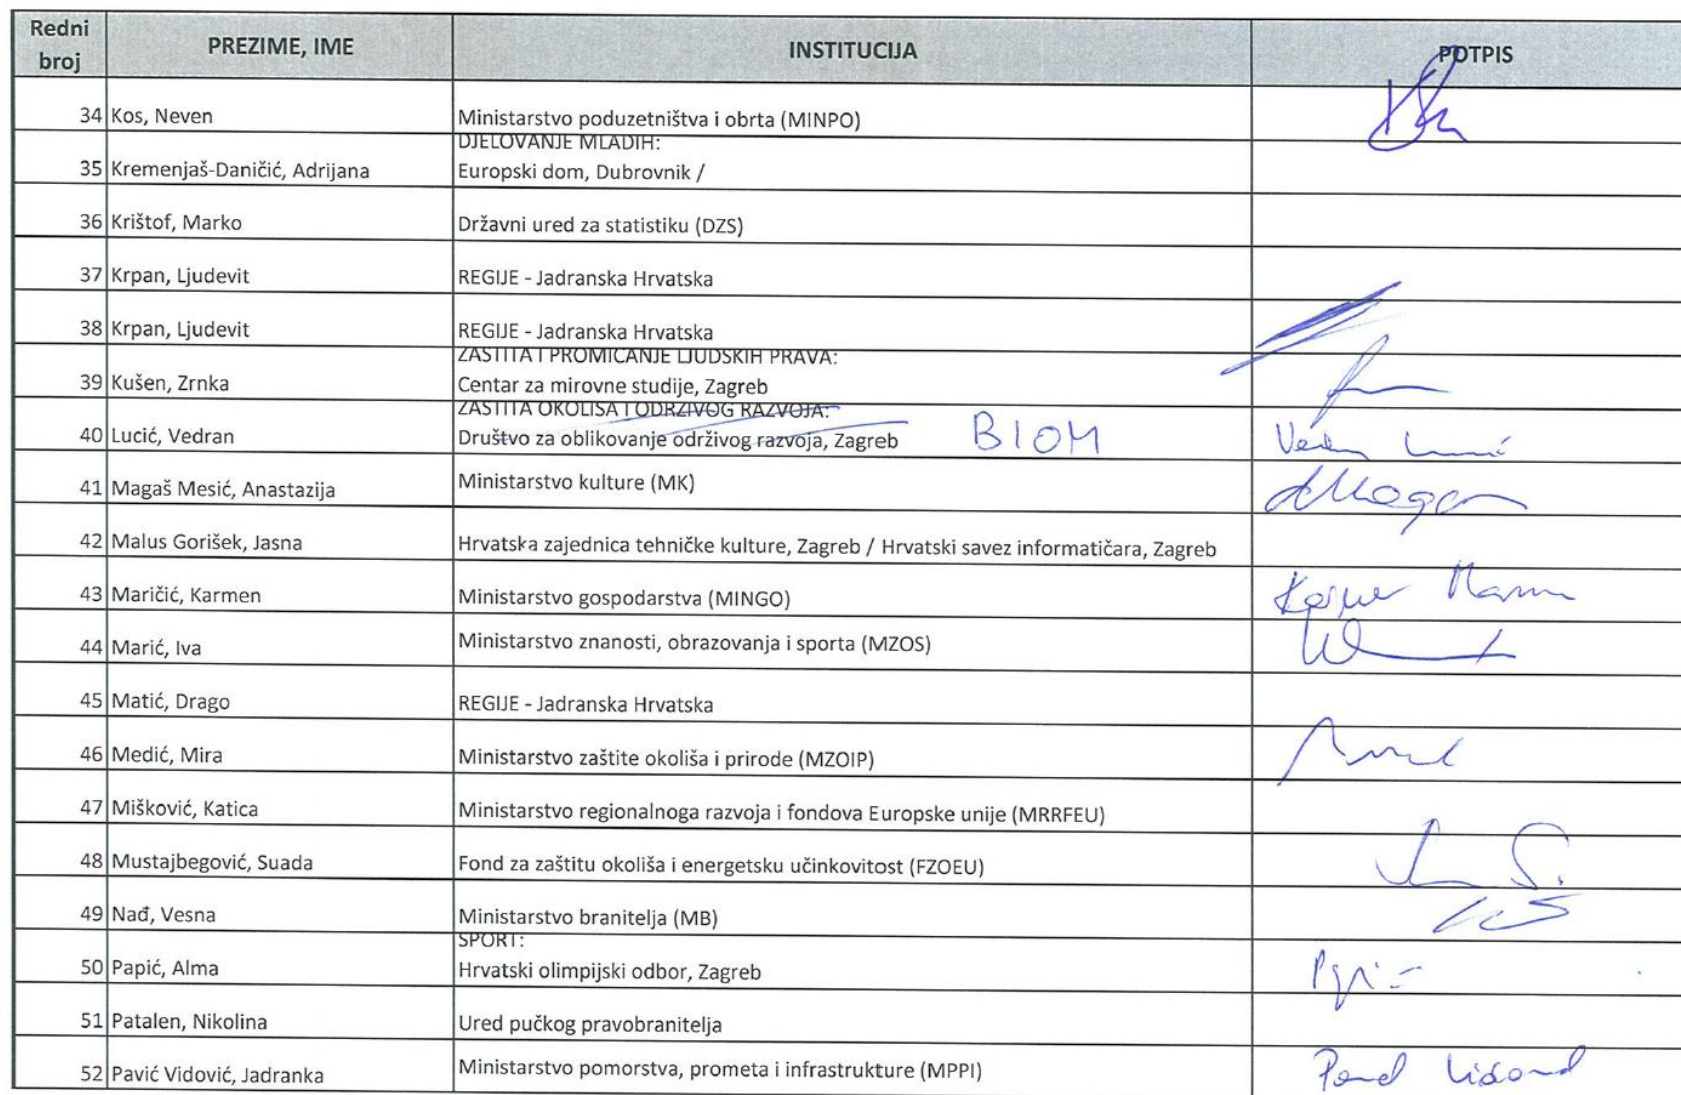 Redni broj PREZIME, IME INSTITUCIJA POTPIS
34 Kos, Neven Ministarstvo poduzetništva i obrta (MINPO)
DJELOVANJE MLADIH:
35 Kremenjaš-Daničić, Adrijana Europski dom, Dubrovnik /
36 Krištof, Marko Državni ured za statistiku (DZS)
37 Krpan, Ljudevit REGIJE - Jadranska Hrvatska
38 Krpan, Ljudevit REGIJE - Jadranska Hrvatska
ZAŠTITA I PROMICANJE LJUDSKIH PRAVA:
39 Kušen, Zrnka Centar za mirovne studije, Zagreb
ZAŠTITA OKOLIŠA I ODRŽIVOG RAZVOJA:
40 Lucić, Vedran Društvo za oblikovanje održivog razvoja, Zagreb BIOM
41 Magaš Mesić, Anastazija Ministarstvo kulture (MK)
42 Malus Gorišek, Jasna Hrvatska zajednica tehničke kulture, Zagreb / Hrvatski savez informatičara, Zagreb
43 Maričić, Karmen Ministarstvo gospodarstva (MINGO)
44 Marić, Iva Ministarstvo znanosti, obrazovanja i sporta (MZOS)
45 Matić, Drago REGIJE - Jadranska Hrvatska
46 Medić, Mira Ministarstvo zaštite okoliša i prirode (MZOIP)
47 Mišković, Katica Ministarstvo regionalnoga razvoja i fondova Europske unije (MRRFEU)
48 Mustajbegović, Suada Fond za zaštitu okoliša i energetsku učinkovitost (FZOEU)
49 Nađ, Vesna Ministarstvo branitelja (MB)
SPORT:
50 Papić, Alma Hrvatski olimpijski odbor, Zagreb
51 Patalen, Nikolina Ured pučkog pravobranitelja
52 Pavić Vidović, Jadranka Ministarstvo pomorstva, prometa i infrastrukture (MPPI)